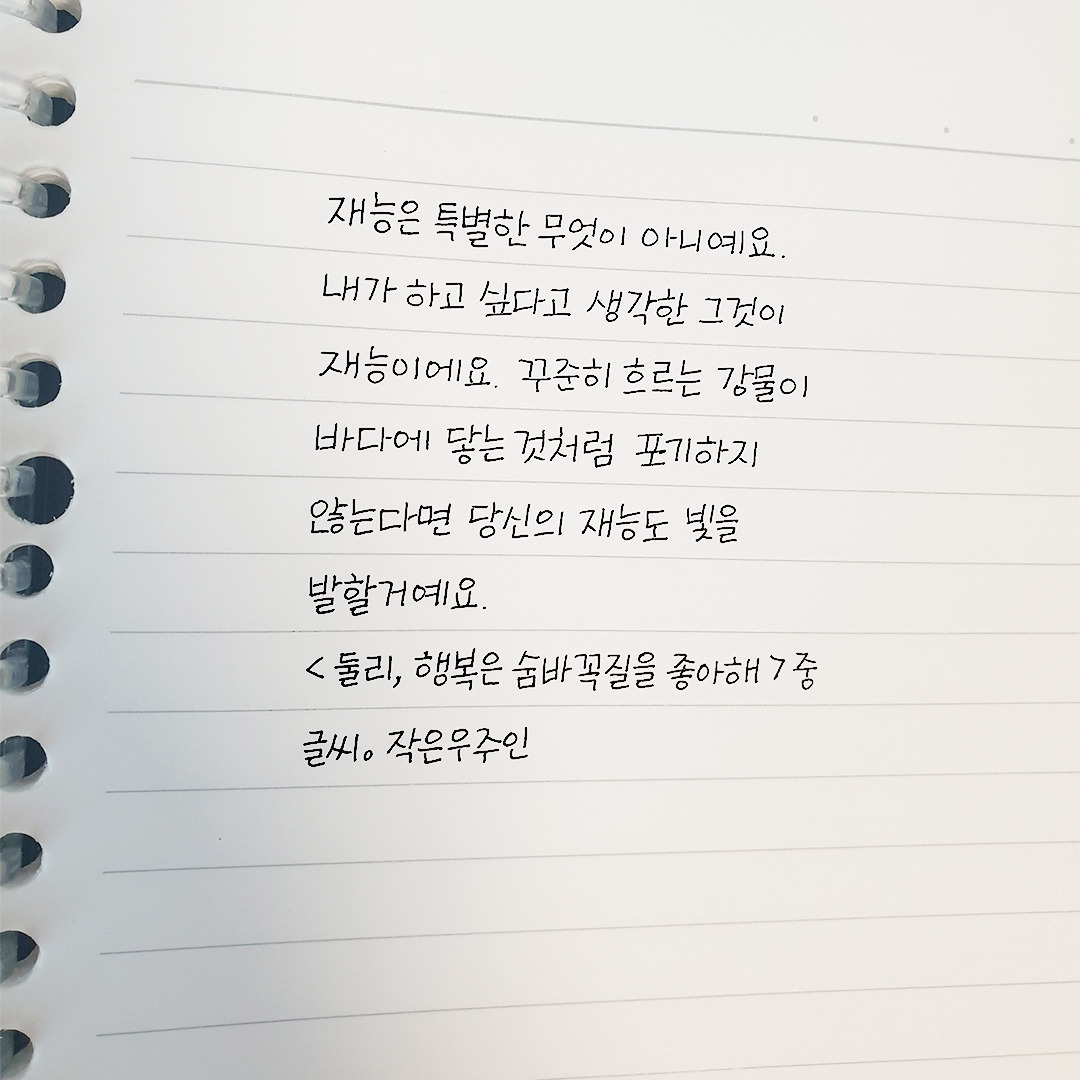 재능은 특별한 무엇이 아니예요.
내가 하고 싶다고 생각한 그것이
재능이에요. 꾸준히 흐르는 강물이
바다에 닿는 것처럼 포기하지
않는다면 당신의 재능도 빛을
발할거예요.
<둘리, 행복은 숨바꼭질을 좋아해> 중
글씨。작은우주인